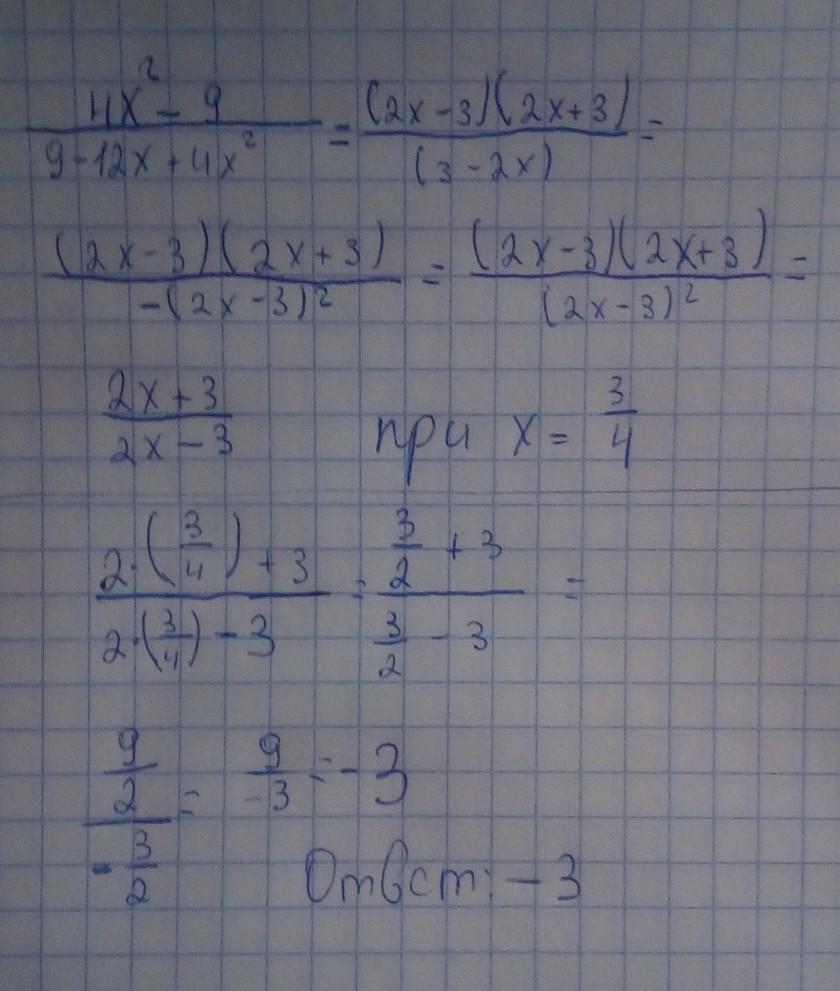 (4x² - 9)/(9-12x+4x²) = ((2x-3)(2x+3))/((3-2x)) =
((2x-3)(2x+3))/(-(2x-3)²) = ((2x-3)(2x+3))/((2x-3)²) =
(2x+3)/(2x-3) при x = 3/4
(2·(3/4)+3)/(2·(3/4)-3) = (3/2 + 3)/(3/2 - 3) =
(9/2)/(-3/2) = 9/-3 = -3
Ответ: -3